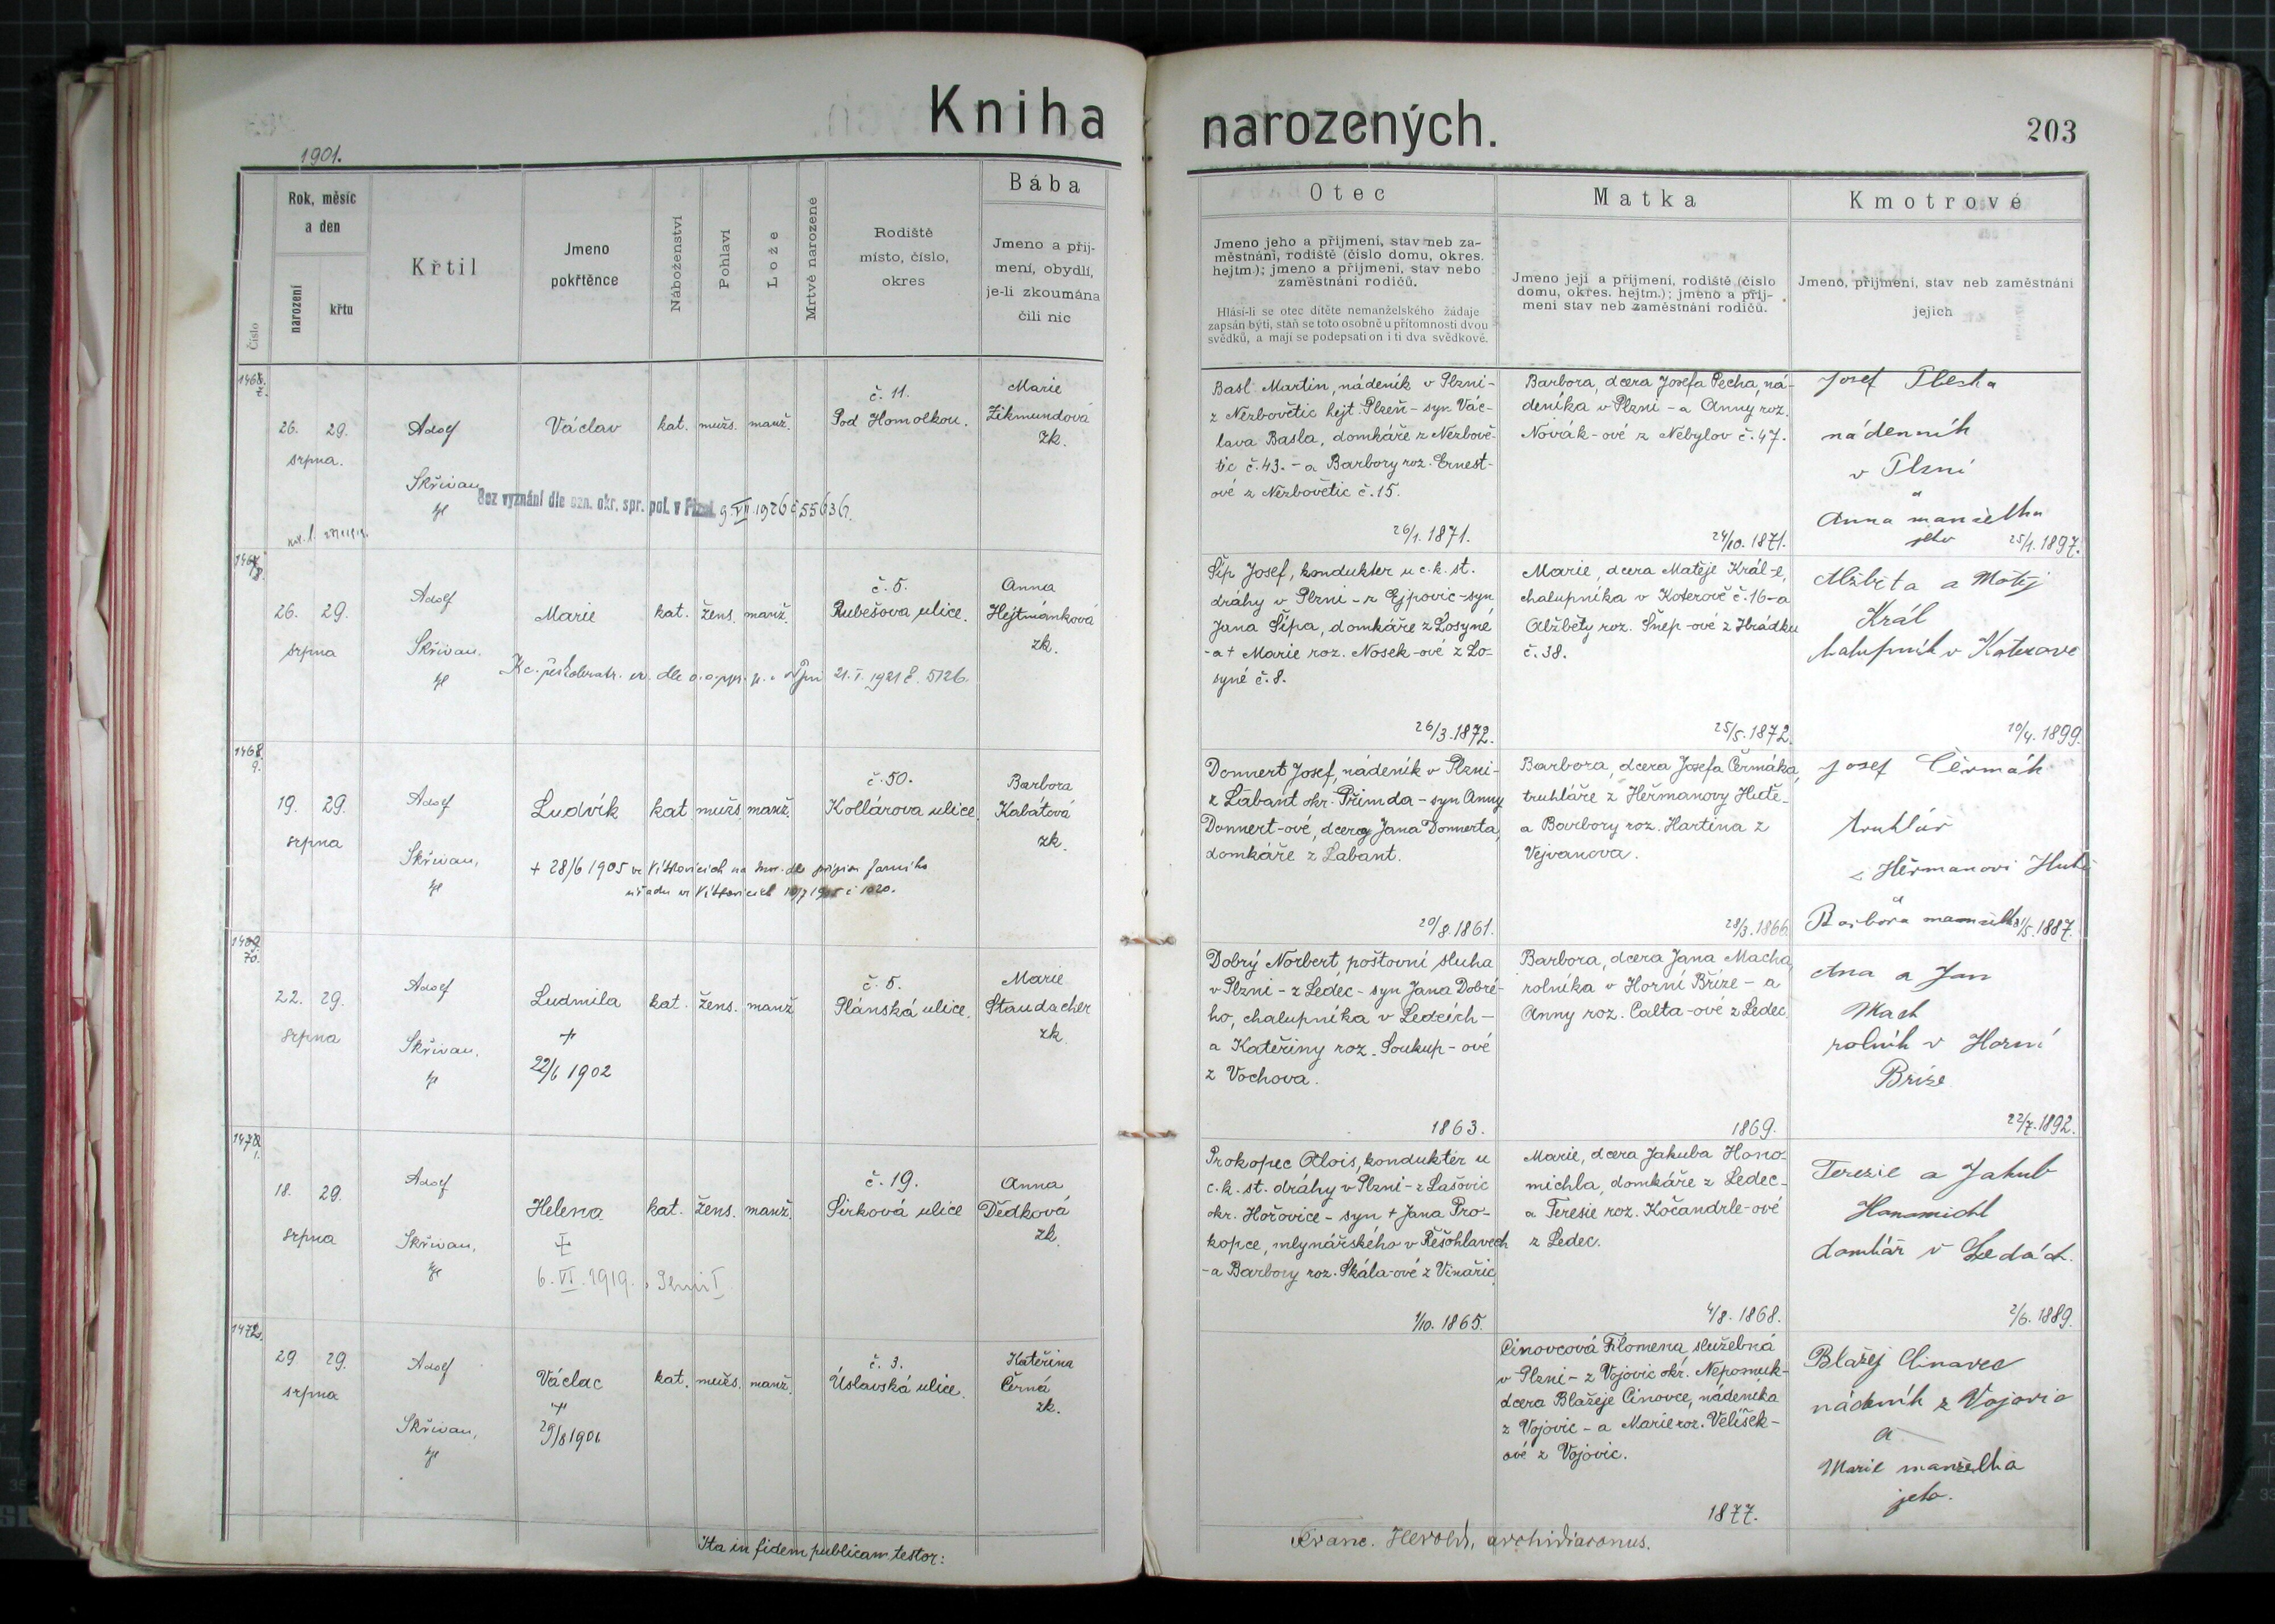 Kniha narozených.
203
1901.
Číslo
Rok, měsíc
a den
narození
křtu
Křtil
Jmeno
pokřtěnce
Náboženství
Pohlaví
Lože
Mrtvě narozené
Rodiště
místo, číslo,
okres
Bába
Jmeno a příj-
mení, obydlí,
je-li zkoumána
čili nic
Otec
Jmeno jeho a přijmení, stav neb za-
městnání, rodiště (číslo domu, okres.
hejtm.); jmeno a přijmení, stav nebo
zaměstnání rodičů.
Hlásí-li se otec dítěte nemanželského žádaje
zapsán býti, staň se toto osobně u přítomnosti dvou
svědků, a mají se podepsati on i ti dva svědkové.
Matka
Jmeno její a přijmení, rodiště (číslo
domu, okres. hejtm.); jmeno a přij-
mení stav neb zaměstnání rodičů.
Kmotrové
Jmeno, přijmení, stav neb zaměstnání
jejich
26. 29.
srpna.
Adolf
Skřivan,
Václav
kat. mužs. manž.
č. 11.
Pod Homolkou.
Marie
Zikmundová
zk.
Bez vyznání dle ozn. okr. spr. pol. v Plzni 9. VII. 1926 č 55636.
Basl Martin, nádeník v Plzni-
z Nezbovětic hejt. Plzeň - syn Vác-
lava Basla, domkáře z Nezbově-
tic č. 43. - a Barbory roz. Ernest-
ové z Nezbovětic č. 15.
26/1. 1871.
Barbora, dcera Josefa Pecha, ná-
deníka v Plzni - a Anny roz.
Novák-ové z Nebylov č. 47.
24/10. 1871.
Josef
nádenník
v Plzni
a
Anna manželka
jeho
25/1. 1897.
26. 29.
srpna
Adolf
Skřivan.
Marie
kat. žens. manž.
č. 5.
Rubešova ulice.
Anna
Hejtmánková
zk.
21. I. 1921 č. 5126.
Šíp Josef, kondukter u c. k. st.
dráhy v Plzni - z Ejpovic - syn
Jana Šípa, domkáře z Losyné
- a + Marie roz. Nosek-ové z Lo-
syné č. 8.
26/3. 1872.
Marie, dcera Matěje Král-e,
chalupníka v Koterově č. 16 - a
Alžběty roz. Šnep-ové z Hrádku
č. 38.
25/5. 1872.
Alžběta a Matěj
Král
halupník v Koterově
10/4. 1899.
19. 29.
srpna
Adolf
Skřivan,
Ludvík
kat mužs manž.
č. 50.
Kollárova ulice.
Barbora
Kabátová
zk.
+ 28/6 1905 ve
Donnert Josef, nádeník v Plzni-
z Labant okr. Přimda - syn Anny
Donnert-ové, dcery Jana Donnerta,
domkáře z Labant.
20/8. 1861.
Barbora, dcera Josefa Čermáka,
truhláře z Heřmanovy Hutě-
a Barbory roz. Hartina z
Vejvanova.
28/3. 1866.
Josef Čermák
truhlář
z Heřmanovi Hutě
a
Barbora manželka
/5. 1887.
22. 29.
srpna
Adolf
Skřivan,
Ludmila
+
22/6 1902
kat. žens. manž
č. 5.
Plánská ulice.
Marie
Staudacher
zk.
Dobrý Norbert, poštovní sluha
v Plzni - z Ledec - syn Jana Dobré-
ho, chalupníka v Ledcích -
a Kateřiny roz. Soukup-ové
z Vochova.
1863.
Barbora, dcera Jana Macha,
rolníka v Horní Bříze - a
Anny roz. Calta-ové z Ledec.
1869.
Ana a Jan
Mach
rolník v Horní
Bříze
22/7. 1892.
18. 29.
srpna
Adolf
Skřivan,
Helena
6. VI. 1919.
kat. žens. manž.
č. 19.
Sirková ulice
Anna
Dědková
zk.
Prokopec Alois, konduktér u
c. k. st. dráhy v Plzni - z Lašovic
okr. Hořovice - syn + Jana Pro-
kopce, mlynářského v Řešohlavech
- a Barbory roz. Skála-ové z Vinařic.
1/10. 1865.
Marie, dcera Jakuba Hono-
michla, domkáře z Ledec-
a Teresie roz. Kočandrle-ové
z Ledec.
4/8. 1868.
Terezie a Jakub
Honomichl
domkář v Ledcích.
2/6. 1889.
1472.
29 29.
srpna
Adolf
Skřivan,
Václac
+
29/8 1901
kat. mužs. manž.
č. 3.
Úslavská ulice.
Kateřina
Černá
zk.
Cinovcová Filomena, služebná
v Plzni - z Vojovic okr. Nepomuk-
dcera Blažeje Cinovce, nádeníka
z Vojovic - a Marie roz. Velíšek-
ové z Vojovic.
1877.
Blažej Cinovec
nádeník z Vojovic
a
Marie manželka
jeho.
Ita in fidem publicam testor:
Franc. Herold, archidiaconus.